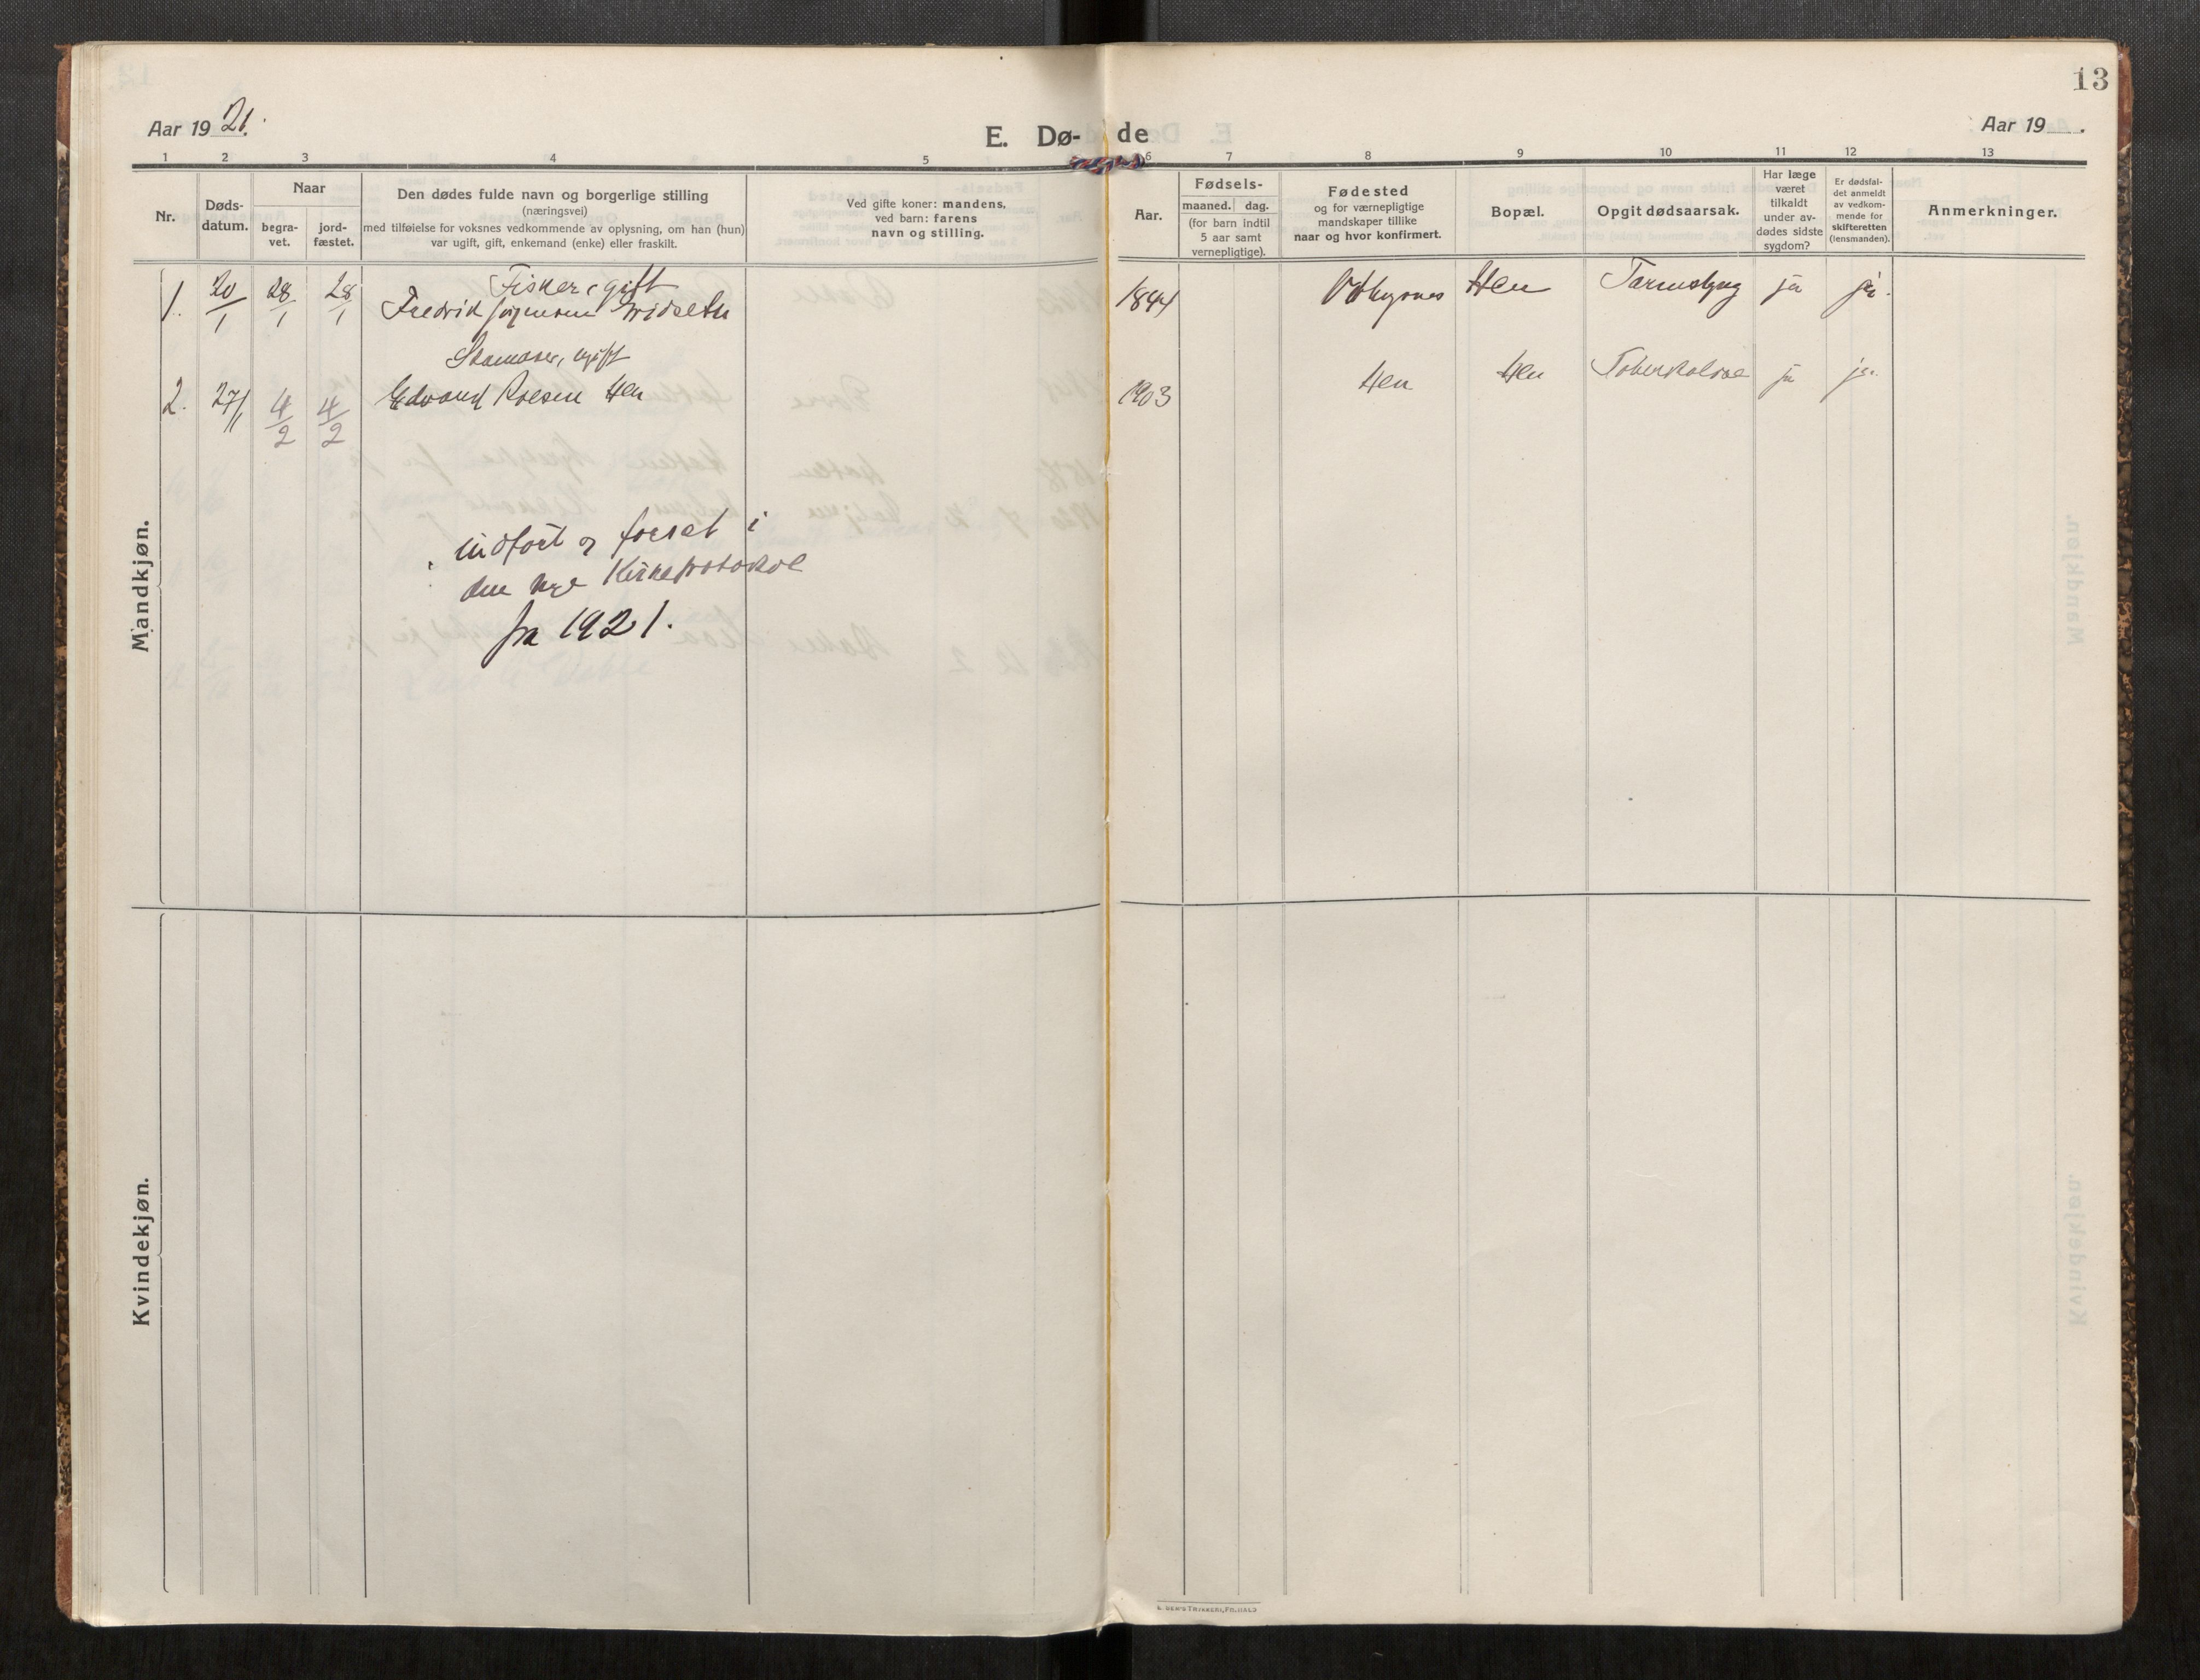 13
Aar 1921.
E. Dø-de
Aar 19 .
1 2 3 4 5 6 7 8 9 10 11 12 13
Nr.
Døds-
datum.
Naar
begra-
vet.
jord-
fæstet.
Den dødes fulde navn og borgerlige stilling
(næringsvei)
med tilføielse for voksnes vedkommende av oplysning, om han (hun)
var ugift, gift, enkemand (enke) eller fraskilt.
Ved gifte koner: mandens,
ved barn: farens
navn og stilling.
Aar.
Fødsels-
maaned. dag.
(for barn indtil
5 aar samt
vernepligtige).
Fødested
og for værnepligtige
mandskaper tillike
naar og hvor konfirmert.
Bopæl.
Opgit dødsaarsak.
Har læge
været
tilkaldt
under av-
dødes sidste
sygdom?
Er dødsfal-
det anmeldt
av vedkom-
mende for
skifteretten
(lensmanden).
Anmerkninger.
Mandkjøn.
Fisker, gift
1. 20/1 28/1 28/1 Fredrik 1844 Hen ja ja.
ugift
2. 27/1 4/2 4/2 Edvard Hen 1903 Hen Hen ja ja.
indført og forsat i
den nye Kirkeprotokol
fra 1921.
Kvindekjøn.